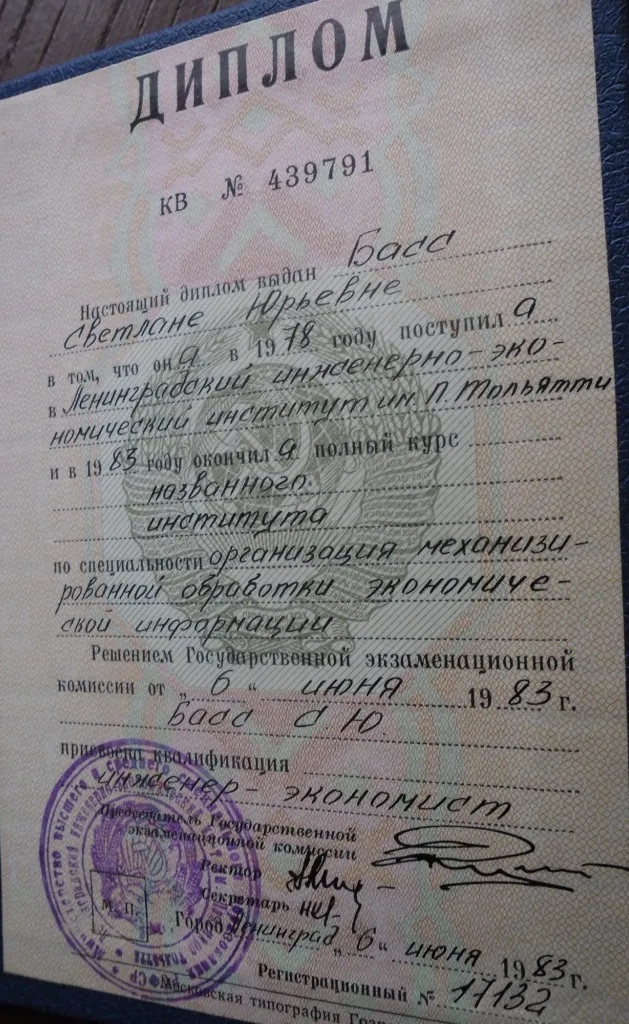 ДИПЛОМ
КВ № 439791
Настоящий диплом выдан Басс
Светлане Юрьевне
в том, что она в 1978 году поступила
в Ленинградский инженерно-эко-
номический институт им. П. Тольятти
и в 1983 году окончила полный курс
названного
института
по специальности организация механизи-
рованной обработки экономиче-
ской информации
Решением Государственной экзаменационной
комиссии от „6“ июня 1983 г.
Басс С Ю.
присвоена квалификация
инженер-экономист
Председатель Государственной
экзаменационной комиссии
Ректор
Секретарь
М. П.
Город Ленинград „6“ июня 1983 г.
Регистрационный № 17132
Московская типография